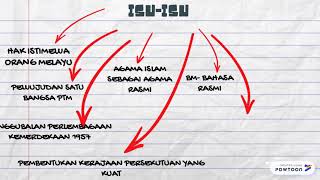 ISU-ISU
HAK ISTIMEWA
ORANG MELAYU
PEWUJUDAN SATU
BANGSA PTM
AGAMA ISLAM
SEBAGAI AGAMA
RASMI
BM- BAHASA
RASMI
NGGUBALAN PERLEMBAGAAN
KEMERDEKAAN 1957
PEMBENTUKAN KERAJAAN PERSEKUTUAN YANG
KUAT
POWTOON